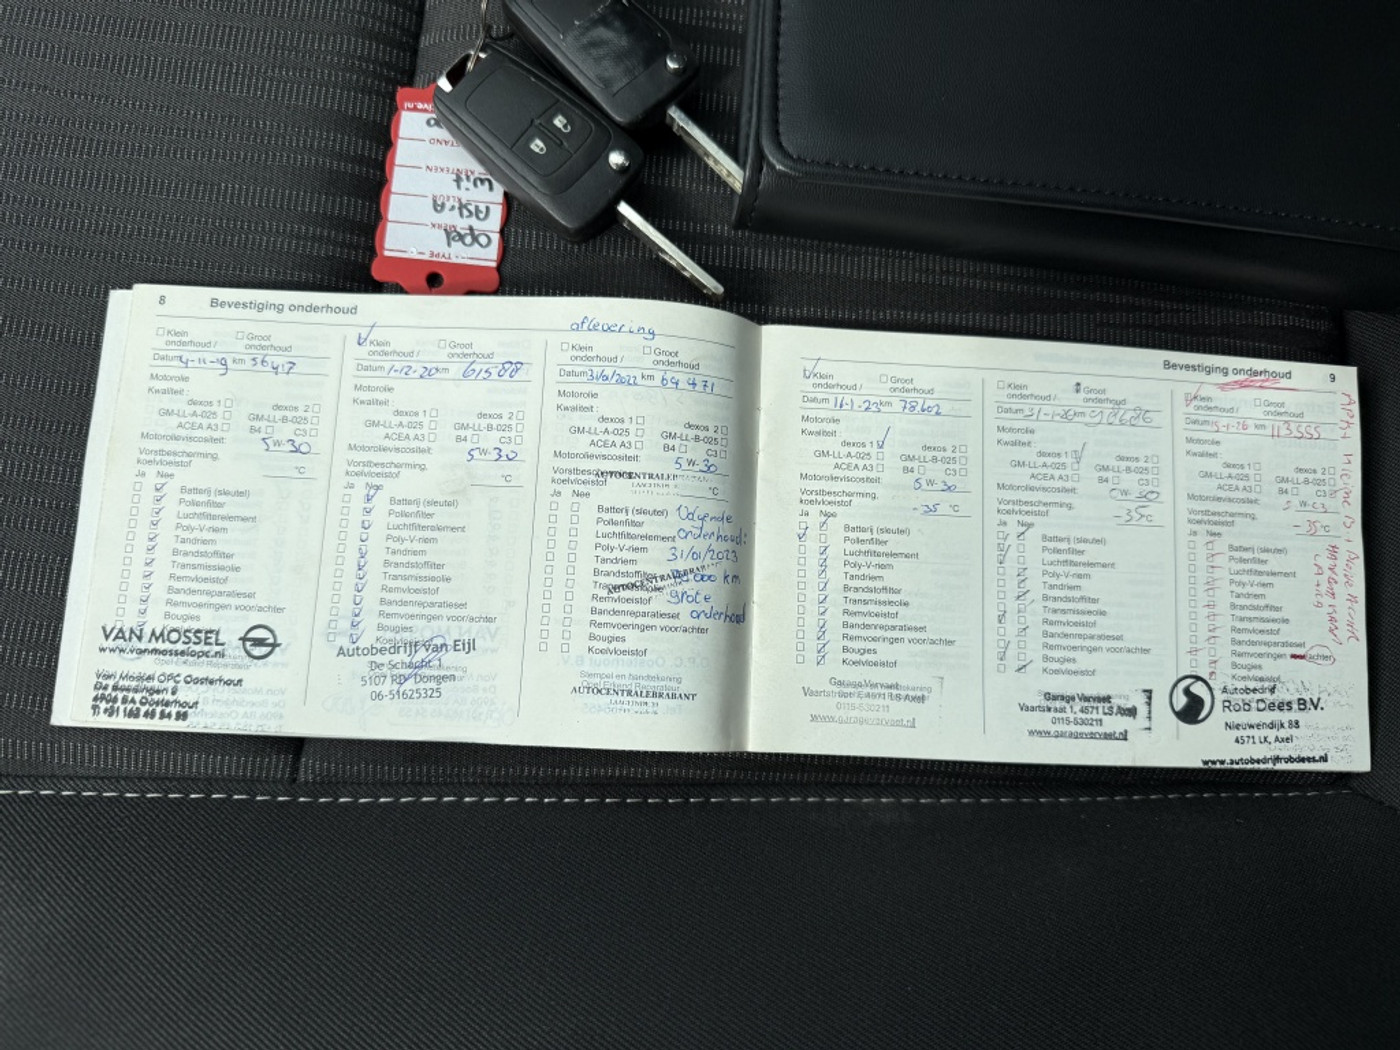 ive.nl
STAND
KENTEKEN
wit
KLEUR
AStrA
MERK
opel
TYPE
8 Bevestiging onderhoud
Klein onderhoud / Groot onderhoud
Datum 4-11-19 km 56417
Motorolie
Kwaliteit :
dexos 1 dexos 2
GM-LL-A-025 GM-LL-B-025
ACEA A3 B4 C3
Motorolieviscositeit: 5W-30
Vorstbescherming, koelvloeistof °C
Ja Nee
Batterij (sleutel)
Pollenfilter
Luchtfilterelement
Poly-V-riem
Tandriem
Brandstoffilter
Transmissieolie
Remvloeistof
Bandenreparatieset
Remvoeringen voor/achter
Bougies
Koelvloeistof
VAN MOSSEL
www.vanmosselopc.nl
Opel Erkend Reparateur
Van Mossel OPC Oosterhout
De Boedingen 9
4906 BA Oosterhout
Klein onderhoud / Groot onderhoud
Datum 1-12-20 km 61588
Motorolie
Kwaliteit :
dexos 1 dexos 2
GM-LL-A-025 GM-LL-B-025
ACEA A3 B4 C3
Motorolieviscositeit: 5W-30
Vorstbescherming, koelvloeistof °C
Ja Nee
Batterij (sleutel)
Pollenfilter
Luchtfilterelement
Poly-V-riem
Tandriem
Brandstoffilter
Transmissieolie
Remvloeistof
Bandenreparatieset
Remvoeringen voor/achter
Bougies
Koelvloeistof
Autobedrijf van Eijl
De Schacht 1
5107 RD Dongen
06-51625325
aflevering
Klein onderhoud / Groot onderhoud
Datum 31/01/2022 km 69471
Motorolie
Kwaliteit :
dexos 1 dexos 2
GM-LL-A-025 GM-LL-B-025
ACEA A3 B4 C3
Motorolieviscositeit: 5W-30
Vorstbescherming, koelvloeistof °C
AUTOCENTRALEBRABANT
Ja Nee
Batterij (sleutel) Volgende
Pollenfilter
Luchtfilterelement onderhoud:
Poly-V-riem 31/01/2023
Tandriem
Brandstoffilter
AUTOCENTRALEBRABANT
Transmissieolie
Remvloeistof grote
Bandenreparatieset onderhoud
Remvoeringen voor/achter
Bougies
Koelvloeistof
Stempel en handtekening
Opel Erkend Reparateur
AUTOCENTRALEBRABANT
Bevestiging onderhoud 9
Klein onderhoud / Groot onderhoud
Datum 16-1-23 km 78.602
Motorolie
Kwaliteit :
dexos 1 dexos 2
GM-LL-A-025 GM-LL-B-025
ACEA A3 B4 C3
Motorolieviscositeit: 5W-30
Vorstbescherming, koelvloeistof -35 °C
Ja Nee
Batterij (sleutel)
Pollenfilter
Luchtfilterelement
Poly-V-riem
Tandriem
Brandstoffilter
Transmissieolie
Remvloeistof
Bandenreparatieset
Remvoeringen voor/achter
Bougies
Koelvloeistof
Garage Vervaet
Vaartstraat 1, 4571 LS Axel
0115-530211
www.garagevervaet.nl
Klein onderhoud / Groot onderhoud
Datum km
Motorolie
Kwaliteit :
dexos 1 dexos 2
GM-LL-A-025 GM-LL-B-025
ACEA A3 B4 C3
Motorolieviscositeit:
Vorstbescherming, koelvloeistof -35°C
Ja Nee
Batterij (sleutel)
Pollenfilter
Luchtfilterelement
Poly-V-riem
Tandriem
Brandstoffilter
Transmissieolie
Remvloeistof
Bandenreparatieset
Remvoeringen voor/achter
Bougies
Koelvloeistof
Garage Vervaet
Vaartstraat 1, 4571 LS Axel
0115-530211
www.garagevervaet.nl
Klein onderhoud / Groot onderhoud
Datum 15-1-26 km 113555
Motorolie
Kwaliteit :
dexos 1 dexos 2
GM-LL-A-025 GM-LL-B-025
ACEA A3 B4 C3
Motorolieviscositeit:
Vorstbescherming, koelvloeistof -35°C
Ja Nee
Batterij (sleutel)
Pollenfilter
Luchtfilterelement
Poly-V-riem
Tandriem
Brandstoffilter
Transmissieolie
Remvloeistof
Bandenreparatieset
Remvoeringen achter
Bougies
Koelvloeistof
Autobedrijf
Rob Dees B.V.
Nieuwendijk 88
4571 LK, Axel
www.autobedrijfrobdees.nl